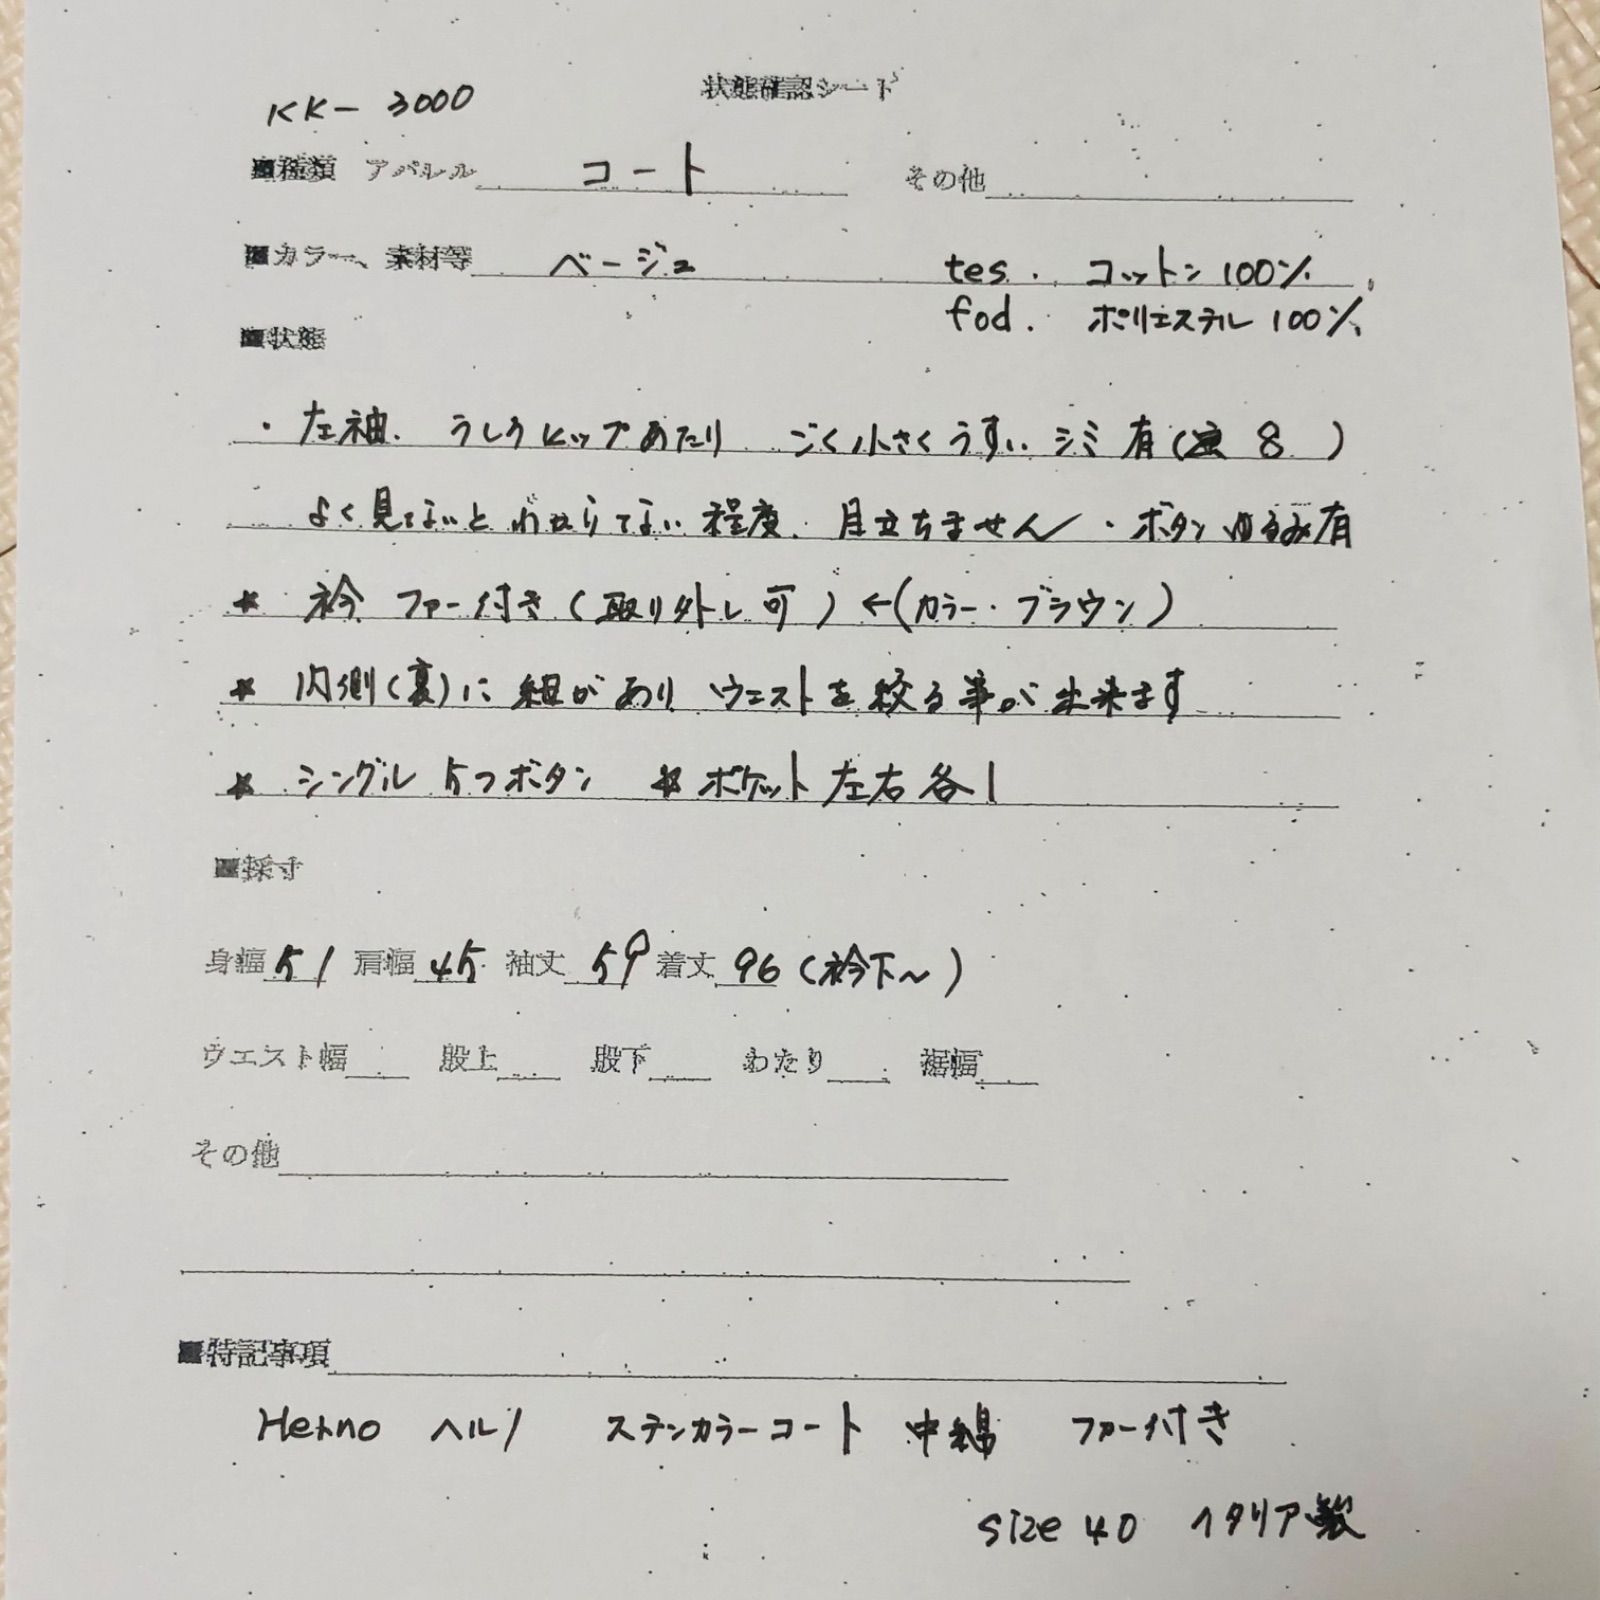 状態確認シート
KK-3000
■種類 アパレル コート その他
■カラー、素材等 ベージュ tes. コットン100%
fod. ポリエステル100%
■状態
・左袖. うしろヒップあたり ごく小さくうすいシミ有( 8 )
よく見てないとわからてない程度. 目立ちません ・ボタンゆるみ有
* 衿 ファー付き(取り外し可)←(カラー・ブラウン)
* 内側(裏)に紐があり ウエストを絞る事が出来ます
* シングル 5つボタン * ポケット左右各1
■採寸
身幅 51 肩幅 45 袖丈 59 着丈 96 (衿下~)
ウエスト幅 股上 股下 わたり 裾幅
その他
■特記事項
Herno ヘルノ ステンカラーコート 中綿 ファー付き
size 40 イタリア製